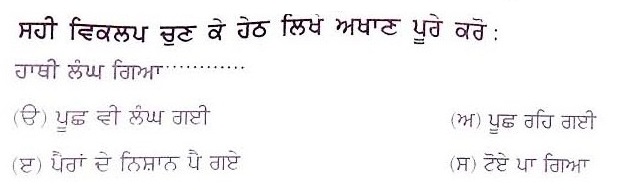 ਸਹੀ ਵਿਕਲਪ ਚੁਣ ਕੇ ਹੇਠ ਲਿਖੇ ਅਖਾਣ ਪੂਰੇ ਕਰੋ :
ਹਾਥੀ ਲੰਘ ਗਿਆ............
(ੳ) ਪੂਛ ਵੀ ਲੰਘ ਗਈ (ਅ) ਪੂਛ ਰਹਿ ਗਈ
(ੲ) ਪੈਰਾਂ ਦੇ ਨਿਸ਼ਾਨ ਪੈ ਗਏ (ਸ) ਟੋਏ ਪਾ ਗਿਆ